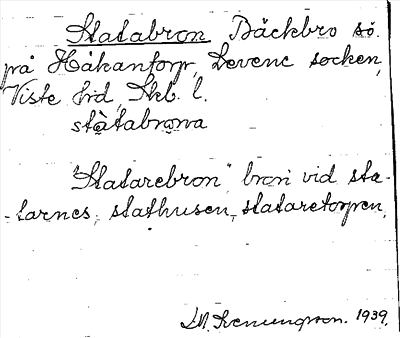 Statabron Bäckbro sö.
på Håkantorp, Levene socken,
Viste hd, Skb. l.
stàtabrọna
"Statarebron", bron vid sta-
-tarnes, stathusen, stataretorpen,
1939.